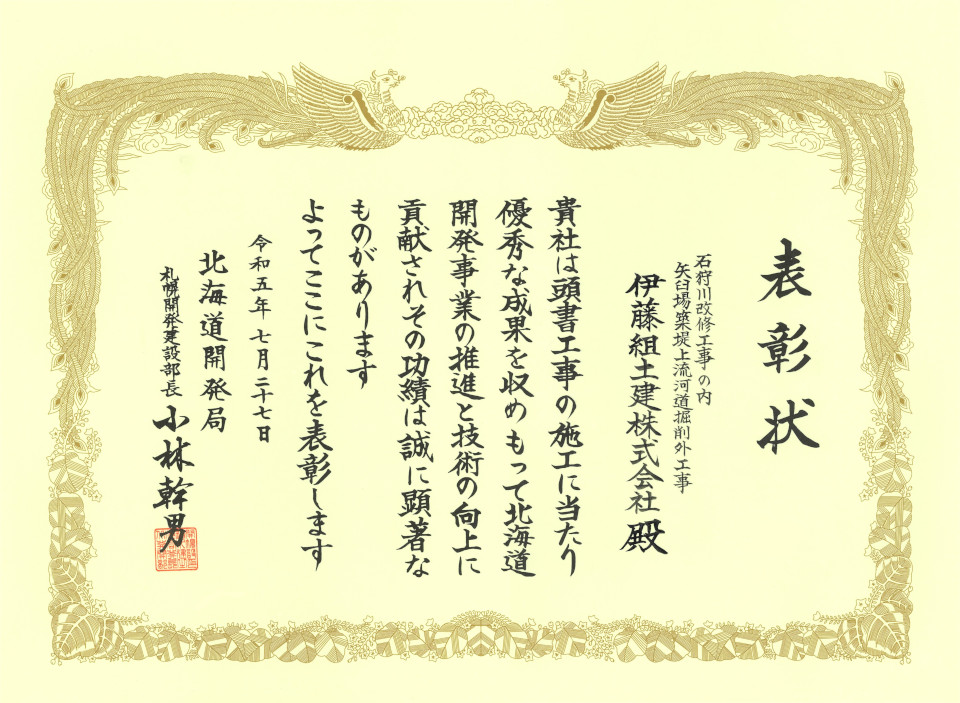 表彰状
石狩川改修工事の内
矢臼場築堤上流河道掘削外工事
伊藤組土建株式会社 殿
貴社は頭書工事の施工に当たり
優秀な成果を収めもって北海道
開発事業の推進と技術の向上に
貢献されその功績は誠に顕著な
ものがあります
よってここにこれを表彰します
令和五年 七月二十七日
北海道開発局
札幌開発建設部長 小林幹男